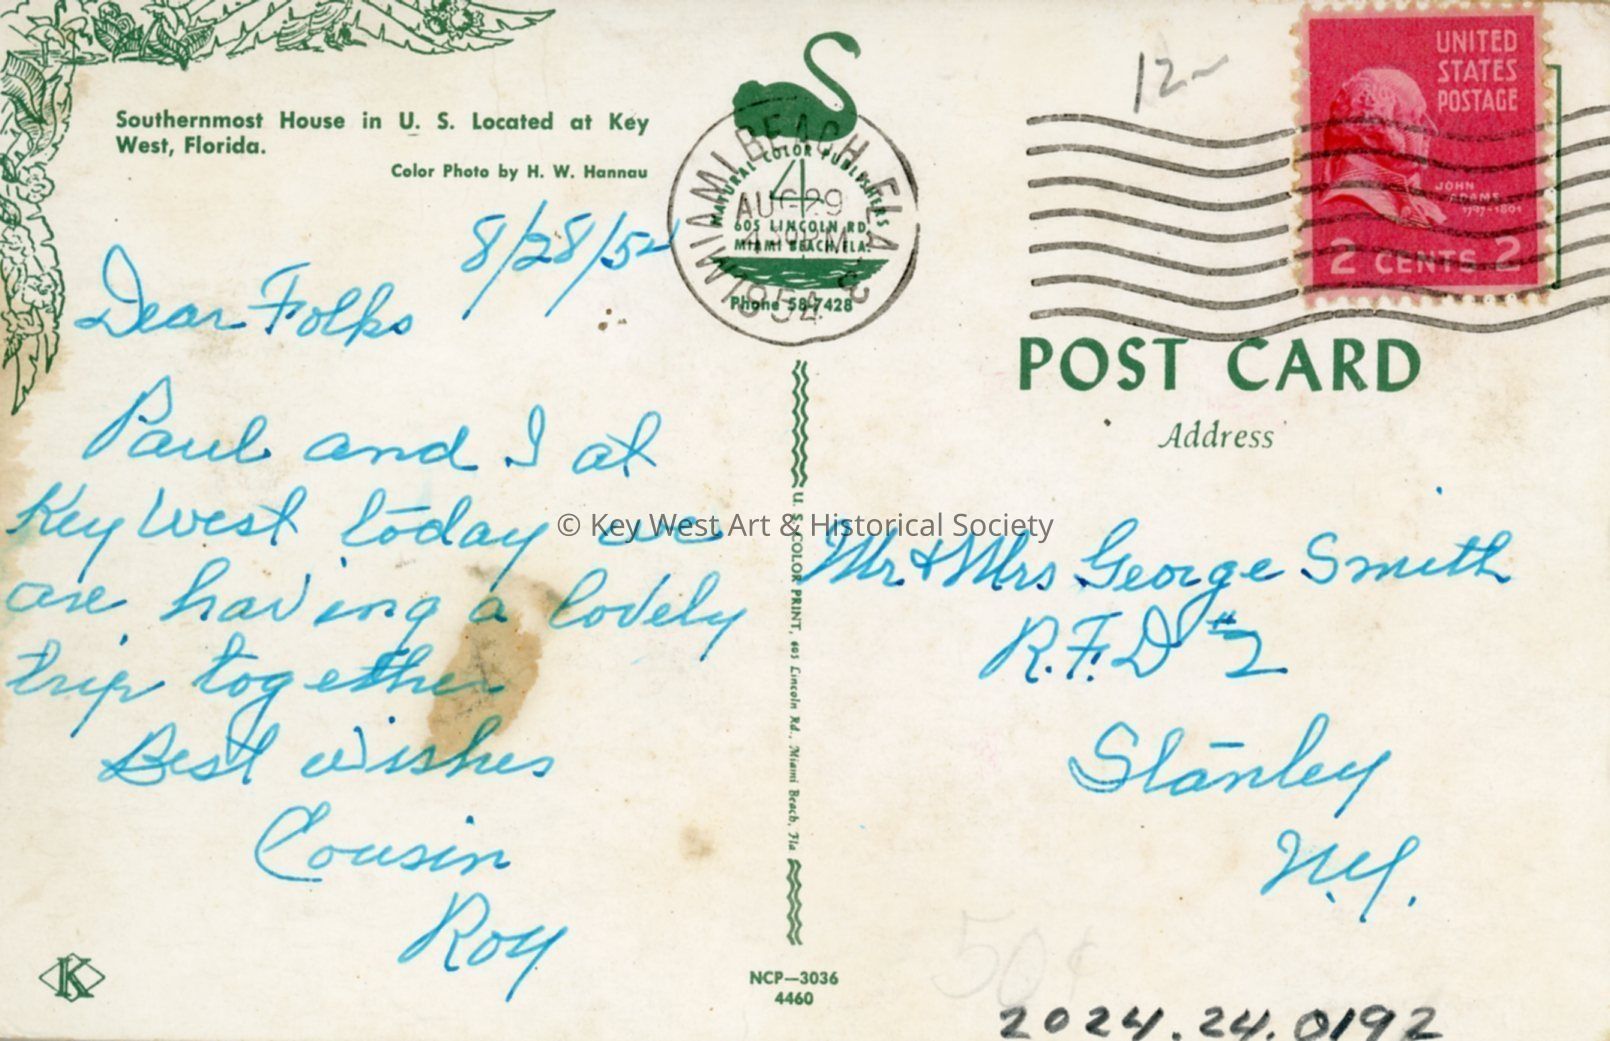 Southernmost House in U. S. Located at Key
West, Florida.
Color Photo by H. W. Hannau
8/28/54
Dear Folks
Paul and I at
Key West today we
are having a lovely
trip together
Best wishes
Cousin
Roy
K
MIAMI BEACH, FLA.
AUG 29
1954
NATURAL COLOR PUBLISHERS
605 LINCOLN RD.
MIAMI BEACH, FLA.
Phone 58-7428
U. S. COLOR PRINT, 605 Lincoln Rd., Miami Beach, Fla
NCP—3036
4460
12-
UNITED
STATES
POSTAGE
JOHN
ADAMS
1797-1801
2 CENTS 2
POST CARD
Address
Mr & Mrs George Smith
R.F.D #2
Stanley
N.Y.
50¢
2024.24.0192
© Key West Art & Historical Society